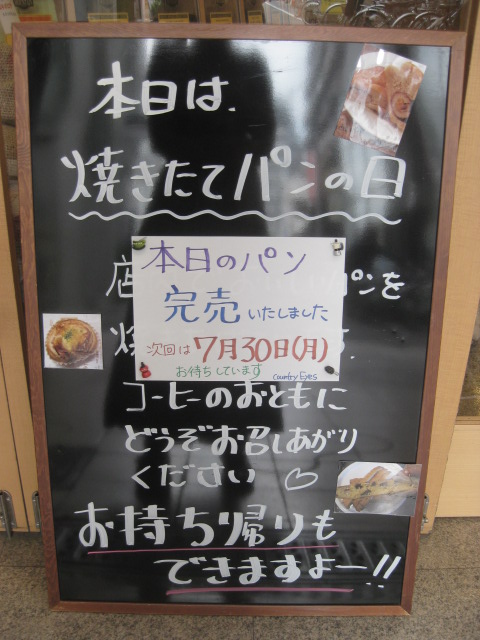 本日は、
焼きたてパンの日
店 パンを
焼 す.
本日のパン
完売いたしました
次回は7月30日(月)
お待ちしています
Country Eyes
コーヒーのおともに
どうぞお召しあがり
ください♡
お持ち帰りも
できますよー!!